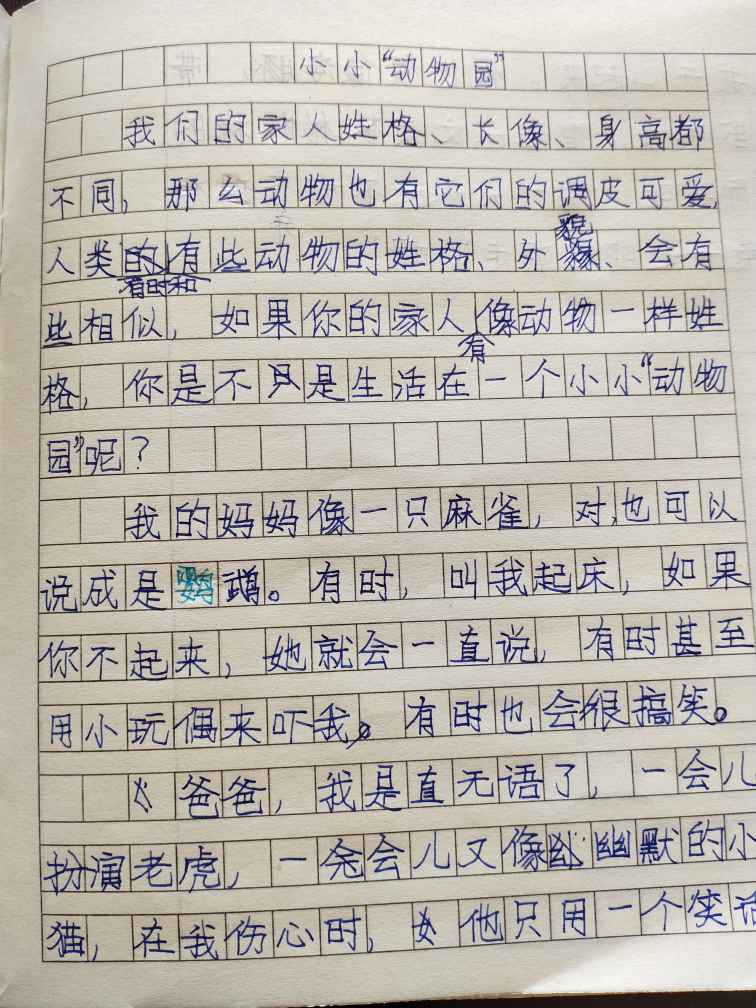 小小“动物园”
我们的家人姓格、长像、身高都
不同，那么动物也有它们的调皮可爱，
人类有时和有些动物的姓格、外貌、会有
些相似，如果你的家人有像动物一样姓
格，你是不是生活在一个小小“动物
园”呢？
我的妈妈像一只麻雀，对，也可以
说成是鹦鹉。有时，叫我起床，如果
你不起来，她就会一直说，有时甚至
用小玩偶来吓我。有时也会很搞笑。
爸爸，我是直无语了，一会儿
扮演老虎，一会儿又像幽默的小
猫，在我伤心时，他只用一个笑话